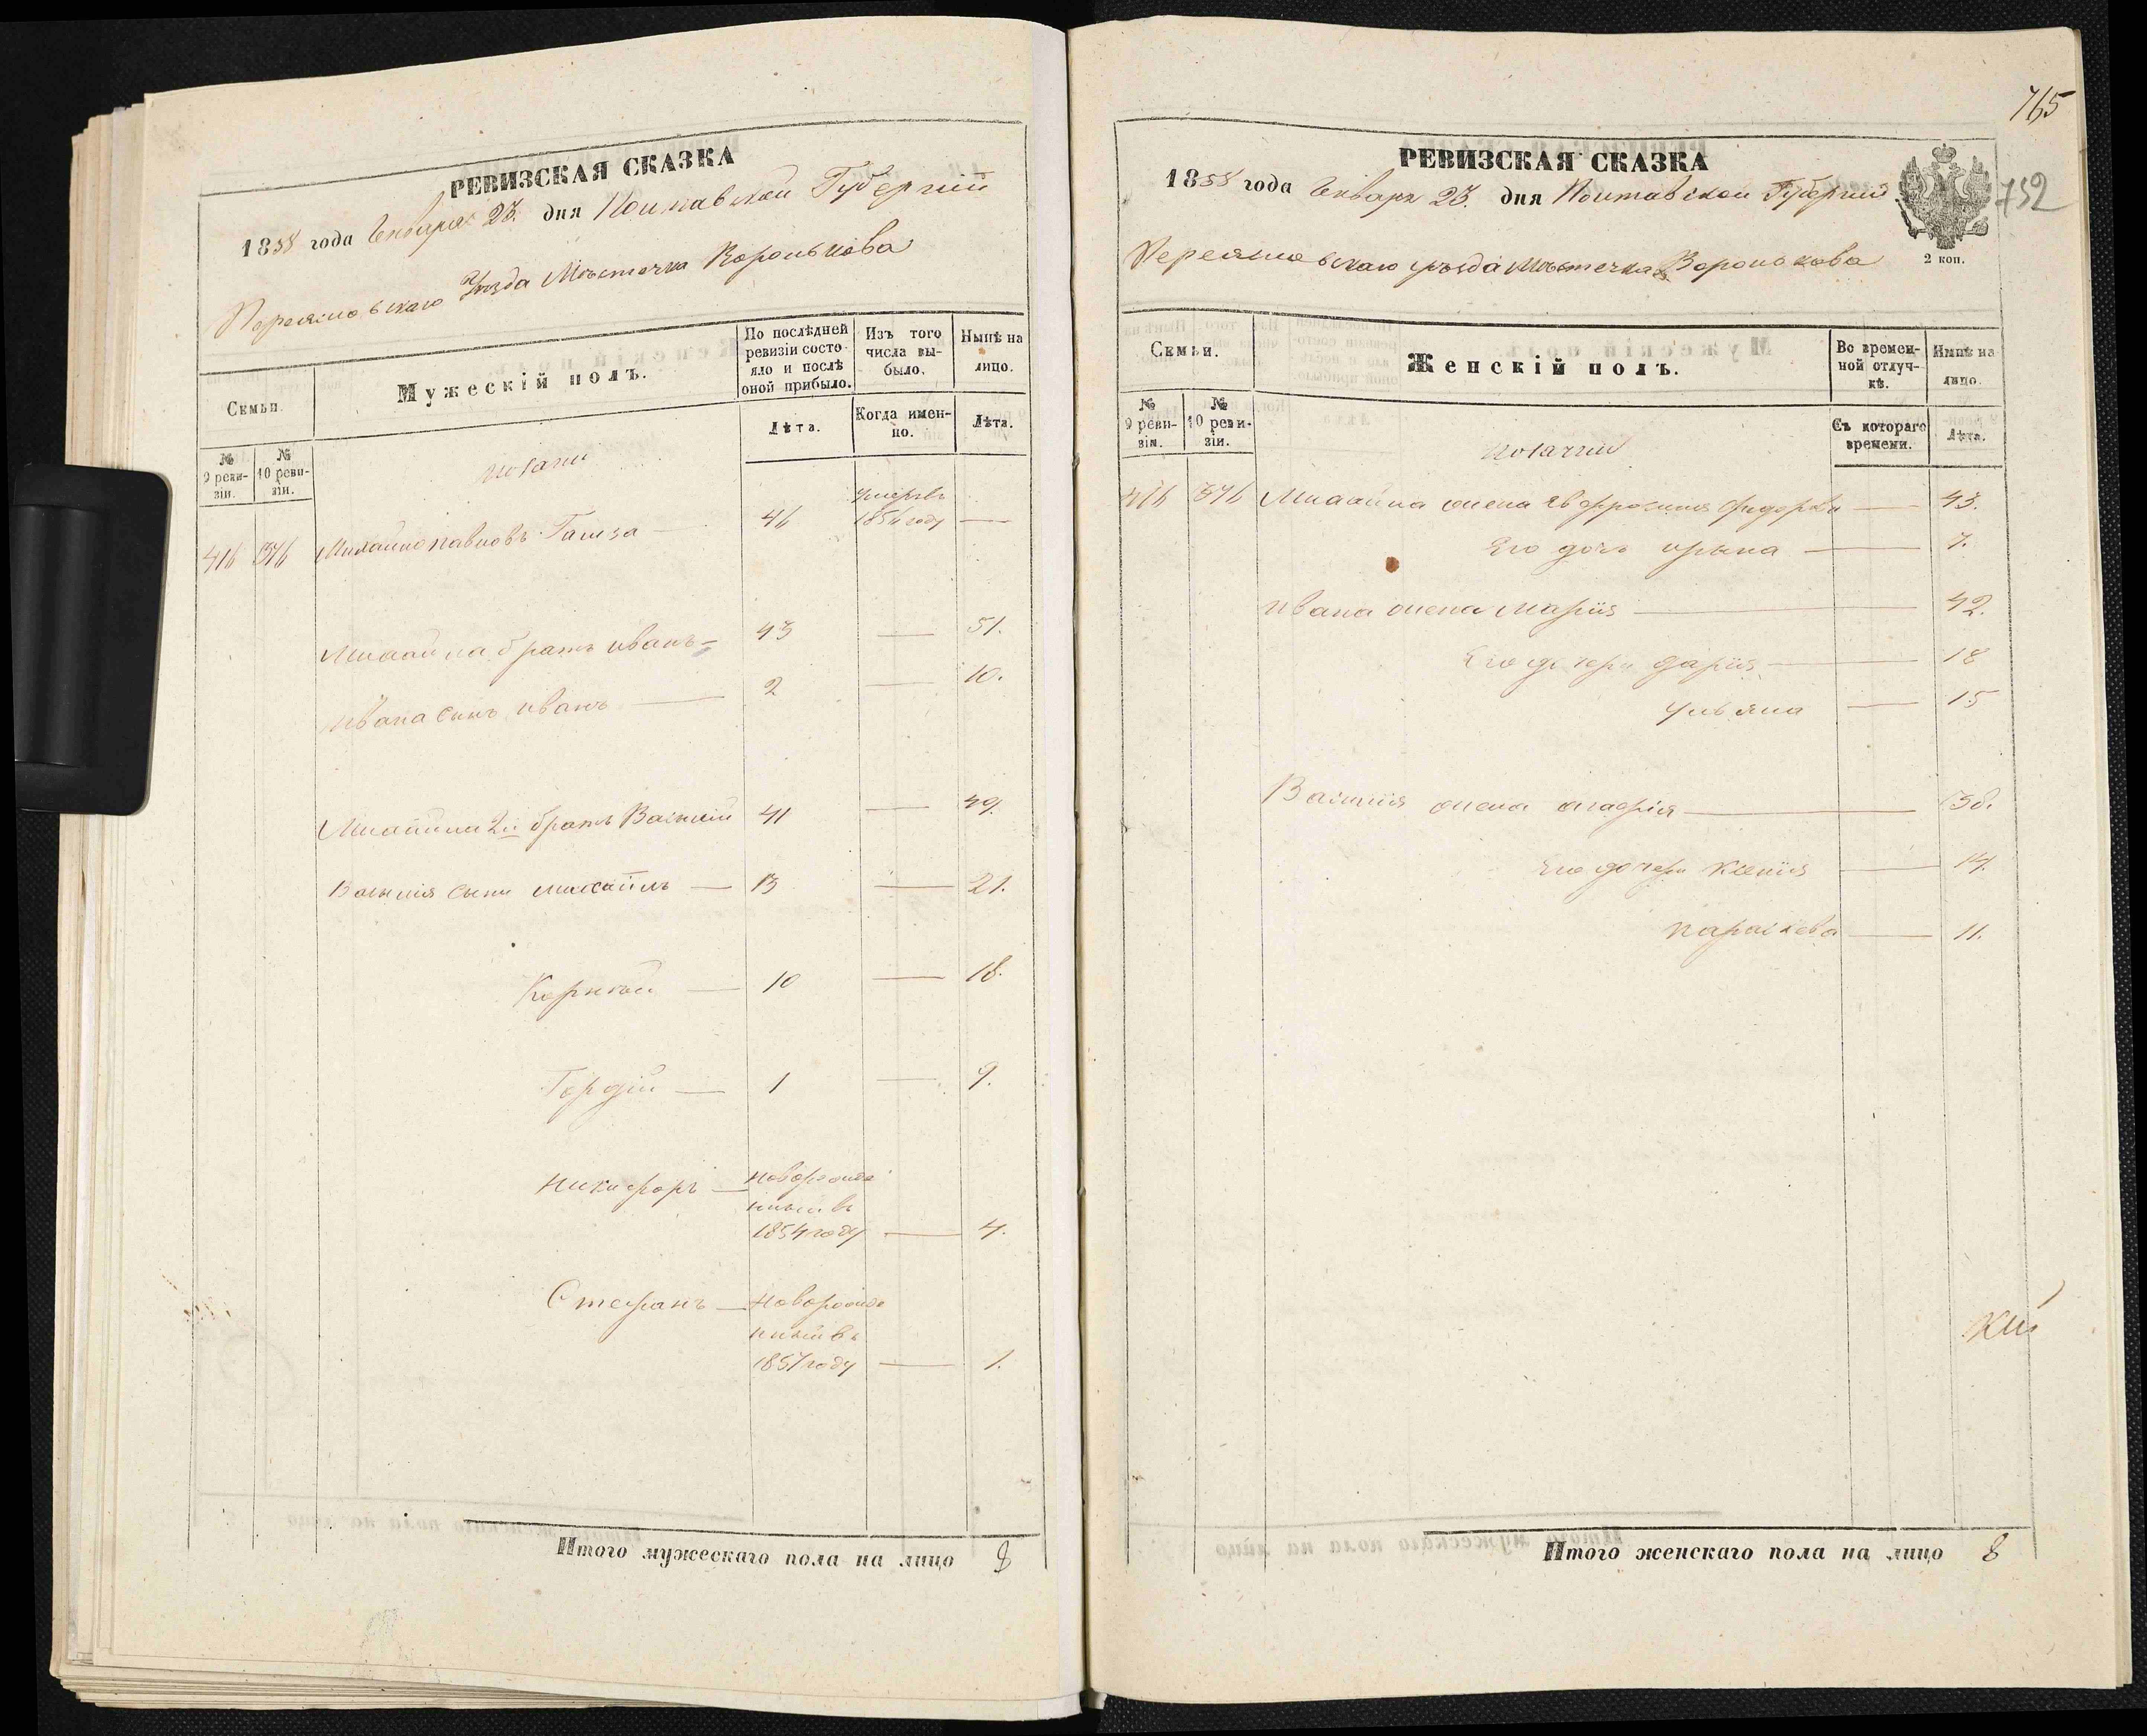 РЕВИЗСКАЯ СКАЗКА
1858 года Генваря 23. дня Полтавской Губерніи
Переяславскаго Уѣзда Мѣстечка Воронькова
Семьи.
Мужескій полъ.
По послѣдней ревизіи состояло и послѣ оной прибыло.
Изъ того числа выбыло.
Нынѣ на лицо.
№ 9 ревизіи.
№ 10 ревизіи.
Лѣта.
Когда именно.
Лѣта.
Козаки
416 376 Михайло Павловъ 46 умеръ въ 1856 году —
Михайла братъ Иванъ 43 — 51.
Ивана сынъ Иванъ — 2 — 10.
Михайла 2й братъ Василій 41 — 49.
Василія сыны Михайлъ — 13 — 21.
Корнѣй — 10 — 18.
Гордій — 1 — 9.
Никифоръ — новорожденный въ 1854 году — 4.
Стефанъ — новорожденный въ 1857 году — 1.
Итого мужескаго пола на лицо 8
765
752
РЕВИЗСКАЯ СКАЗКА
1858 года Генваря 23. дня Полтавской Губерніи
Переяславскаго уѣзда Мѣстечка Воронькова
2 коп.
Семьи.
Женскій полъ.
Во временной отлучкѣ.
Нынѣ на лицо.
№ 9 ревизіи.
№ 10 ревизіи.
Съ котораго времени.
Лѣта.
Козачки
416 376 Михайла жена Евфросинія — 43.
Его дочь Ирына — 7.
Ивана жена Марія — 42.
Его дочери Дарія — 18
Ульяна — 15
Василія жена Агафія — 38.
Его дочери Ксенія — 14.
Параскева — 11.
Итого женскаго пола на лицо 8